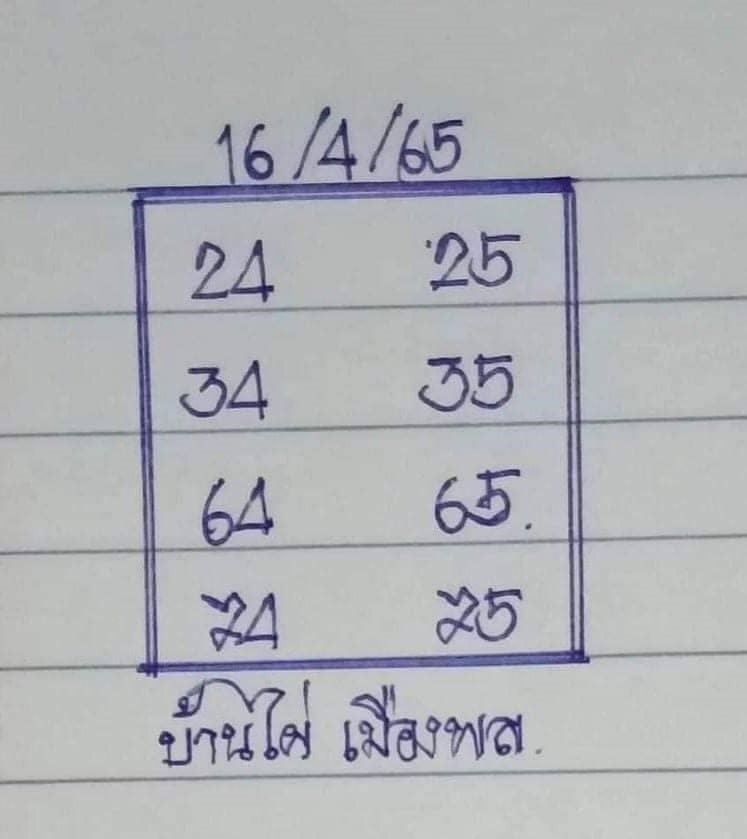 16/4/65
24 25
34 35
64 65.
74 75
บ้านไผ่ เมืองพล.